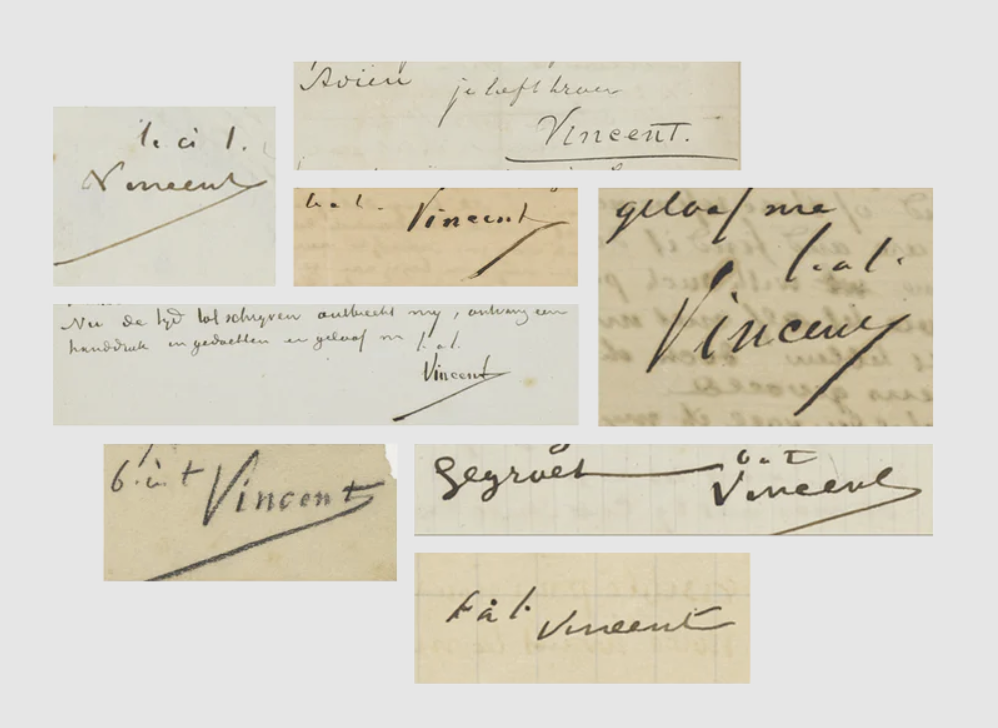 Adieu
je liefh. broer
Vincent.
t. à t.
Vincent
t. à t.
Vincent
geloof me
t. à t.
Vincent
Nu de tijd tot schrijven ontbreekt my, ontvang een
handdruk in gedachten en geloof me t. à t.
Vincent
t. à t.
Vincent
Gegroet
t. à t.
Vincent
t. à t. Vincent